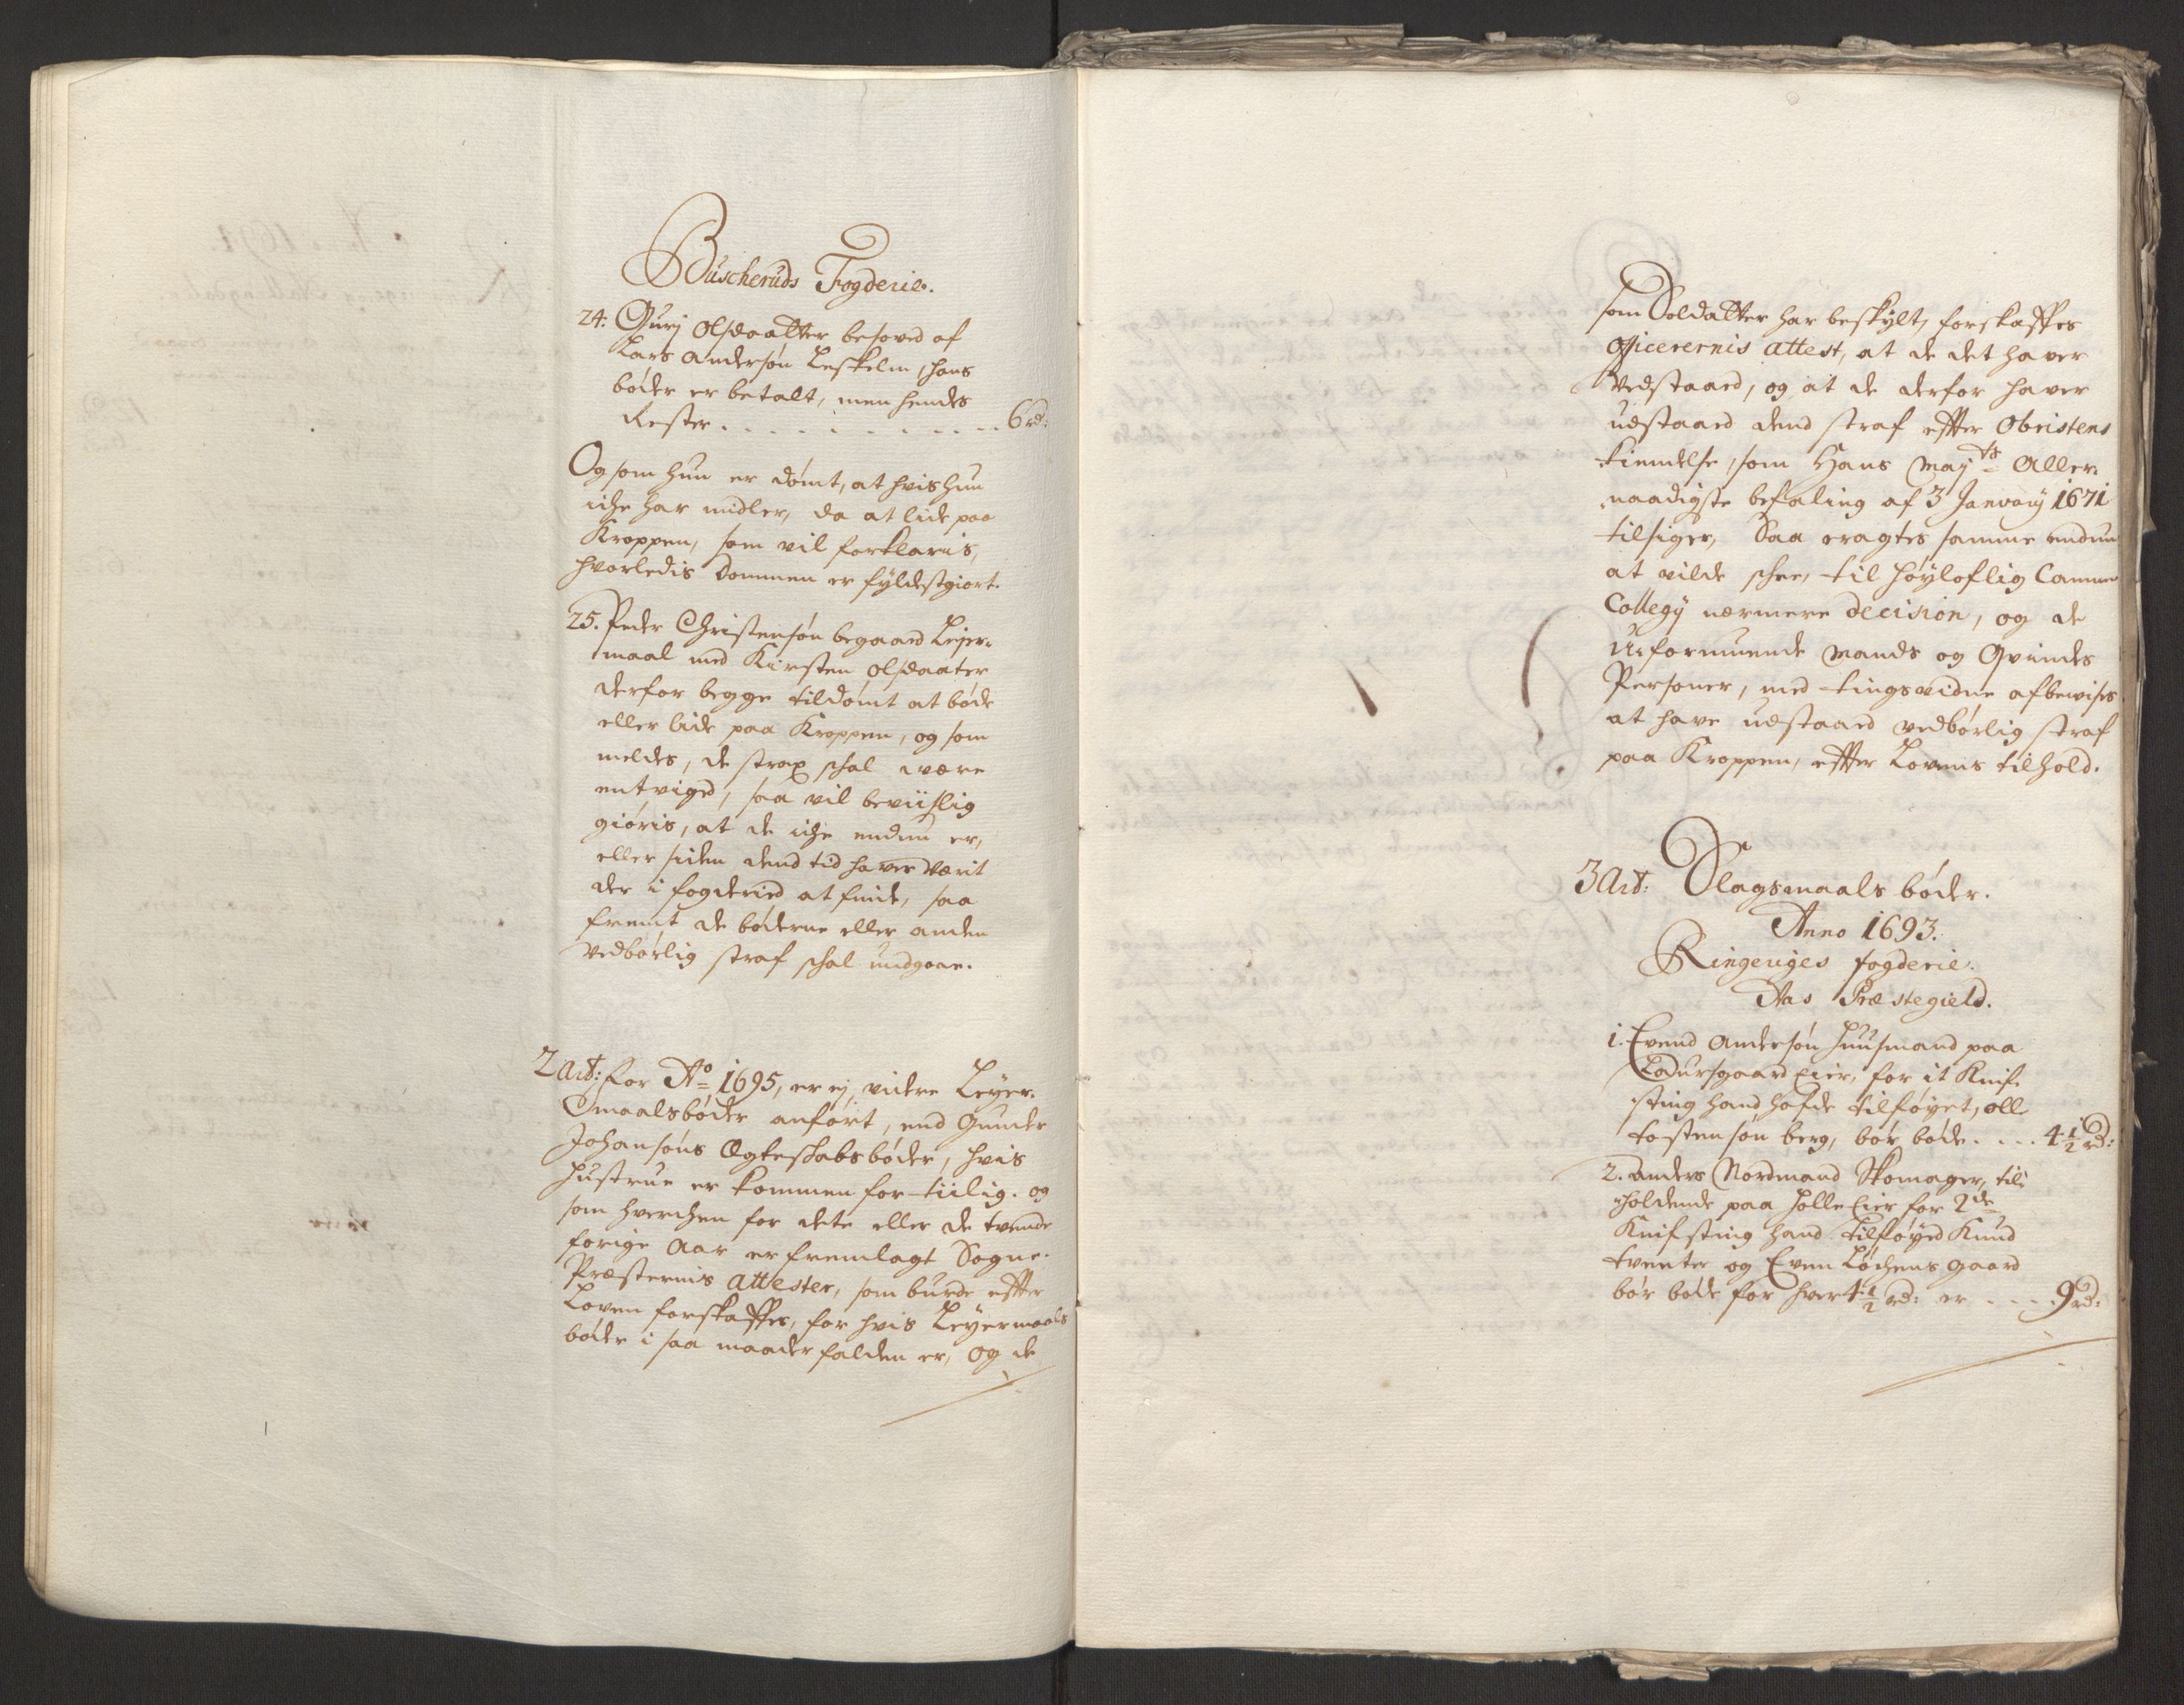 Buscheruds Fogderie.
24. Gurj Olsdaatter besoved af
Lars Andersøn Leskelin, hans
bøder er betalt, men hendes
Rester . . . . . . . . . . 6 rd:
Og som hun er dømt, at hvis hun
iche har midler, da at lide paa
Kroppen, som vil forklaris,
hvorledis Dommen er fyldestgiort.
25. Peder Christensøn begaaed Lejer-
maal med Kirsten Olsdaater
derfor begge tildømt at bøde
eller lide paa Kroppen, og som
meldes, de strax schal være
entviged, saa vil beviislig
giøris, at de iche endnu er,
eller siden dend tid haver værit
der i fogderied at finde, saa
fremt de bøderne eller anden
vedbørlig straf schal undgaae.
2 Art: for Ao 1695, er ej videre Leyer-
maalsbøder anført, end Gunder
Johansøns Ægteskabsbøder, hvis
hustrue er kommen for tiilig. og
som hverchen for dete eller de tvende
forige Aar er fremlagt Sogne-
Præsternis Attester, som burde effter
Loven forskaffes, for hvis Leyermaals
bøder i saa maader falden er, og de
som Soldatter har beskylt, forskaffes
Officerernis Attest, at de det haver
vedstaaed, og at de derfor haver
udstaaed dend straf effter Obristens
kiendelse, som Hans Mayts Aller-
naadigste befaling af 3 Janvarij 1671
tilsiger, Saa eragtes samme endnu
at vilde schee, til høyloflig Cammer
Collegij nærmere decision, og de
Uformuende Mands og Qvindes
Personer, med tingsvidne afbevises
at have udstaaed vedbørlig straf
paa Kroppen, effter Lovens tilhold.
3 Art: Slagsmaals bøder.
Anno 1693.
Ringeriges fogderie.
Aas Præstegield.
1. Evend Andersøn huusmand paa
Eier, for it Knif-
sting hand hafde tilføyet, oll
tostensøn berg, bør bøde . . . 4 1/2 rd:
2. Anders Nordmand Skomager, til-
holdende paa holle Eier for 2de
Knifsting hand tilføyed Knud
tventer og Even Løchens gaard
bør bøde for hver 4 1/2 rd: er . . . 9 rd: